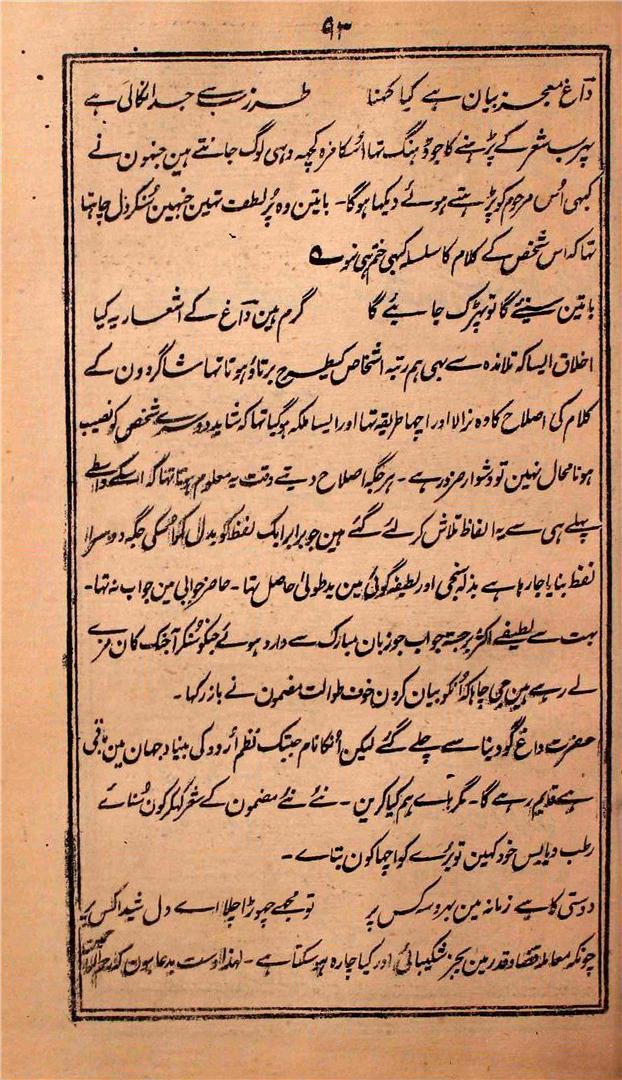 ۹۳
داغ معجز بیان ہے کیا کہنا طرز سب سے جدا نکالی ہے
پہر سب شعر کے پڑہنے کا جو ڈہنگ تہا اُسکا مزہ کچہہ وہی لوگ جانتے ہین جنہون نے
کبہی اُس مرحوم کو پڑہتے ہوئے دیکہا ہوگا۔ باتین وہ پُر لطف تہین جنہین سُنکر دل چاہتا
تہا کہ اس شخص کے کلام کا سلسلہ کبہی ختم ہی نہو ؎
باتین سنیئے گا تو پہڑک جایئے گا گرم ہین داغ کے اشعار یہ کیا
اخلاق ایسا کہ تلامذہ سے بہی ہم رتبہ اشخاص کیطرح برتاؤ ہوتا تہا شاگردون کے
کلام کی اصلاح کا وہ نرالا اور اچہا طریقہ تہا اور ایسا ملکہ ہوگیا تہا کہ شاید دوسرے شخص کو نصیب
ہونا محال نہین تو دشوار ضرور ہے۔ ہر جگہ اصلاح دیتے وقت یہ معلوم ہوتا تہا کہ اسکے واسطے
پہلے ہی سے یہ الفاظ تلاش کرلئے گئے ہین جو برابر ایک لفظ کو بدل کر اُسکی جگہ دوسرا
لفظ بنایا جارہا ہے بذلہ سنجی اور لطیفہ گوئی مین ید طولیٰ حاصل تہا۔ حاضر جوابی مین جواب نہ تہا۔
بہت سے لطیفے اکثر برجستہ جواب جو زبان مبارک سے وارد ہوئے جنکو سُنکر آجتک کان مزے
لے رہے ہین جی چاہا کہ اُنکو بیان کرون خوف طوالت مضمون نے باز رکہا۔
حضرت داغ گو دنیا سے چلے گئے لیکن اُنکا نام جبتک نظم اُردو کی بنیاد جہان مین باقی
ہے قایم رہے گا۔ مگر ہائے ہم کیا کرین۔ نئے نئے مضمون کے شعر کہکر کون سُنائے
رطب و یابس خود کہین تو بُرے کو اچہا کون بتائے۔
دوستی کا ہے زمانہ مین بہروسہ کس پر تو مجہے چہوڑ چلا اے دل شیدا کس پر
چونکہ معاملہ قضا و قدر مین بجز شکیبائی اور کیا چارہ ہوسکتا ہے۔ لہذا دست بدعا ہون کہ